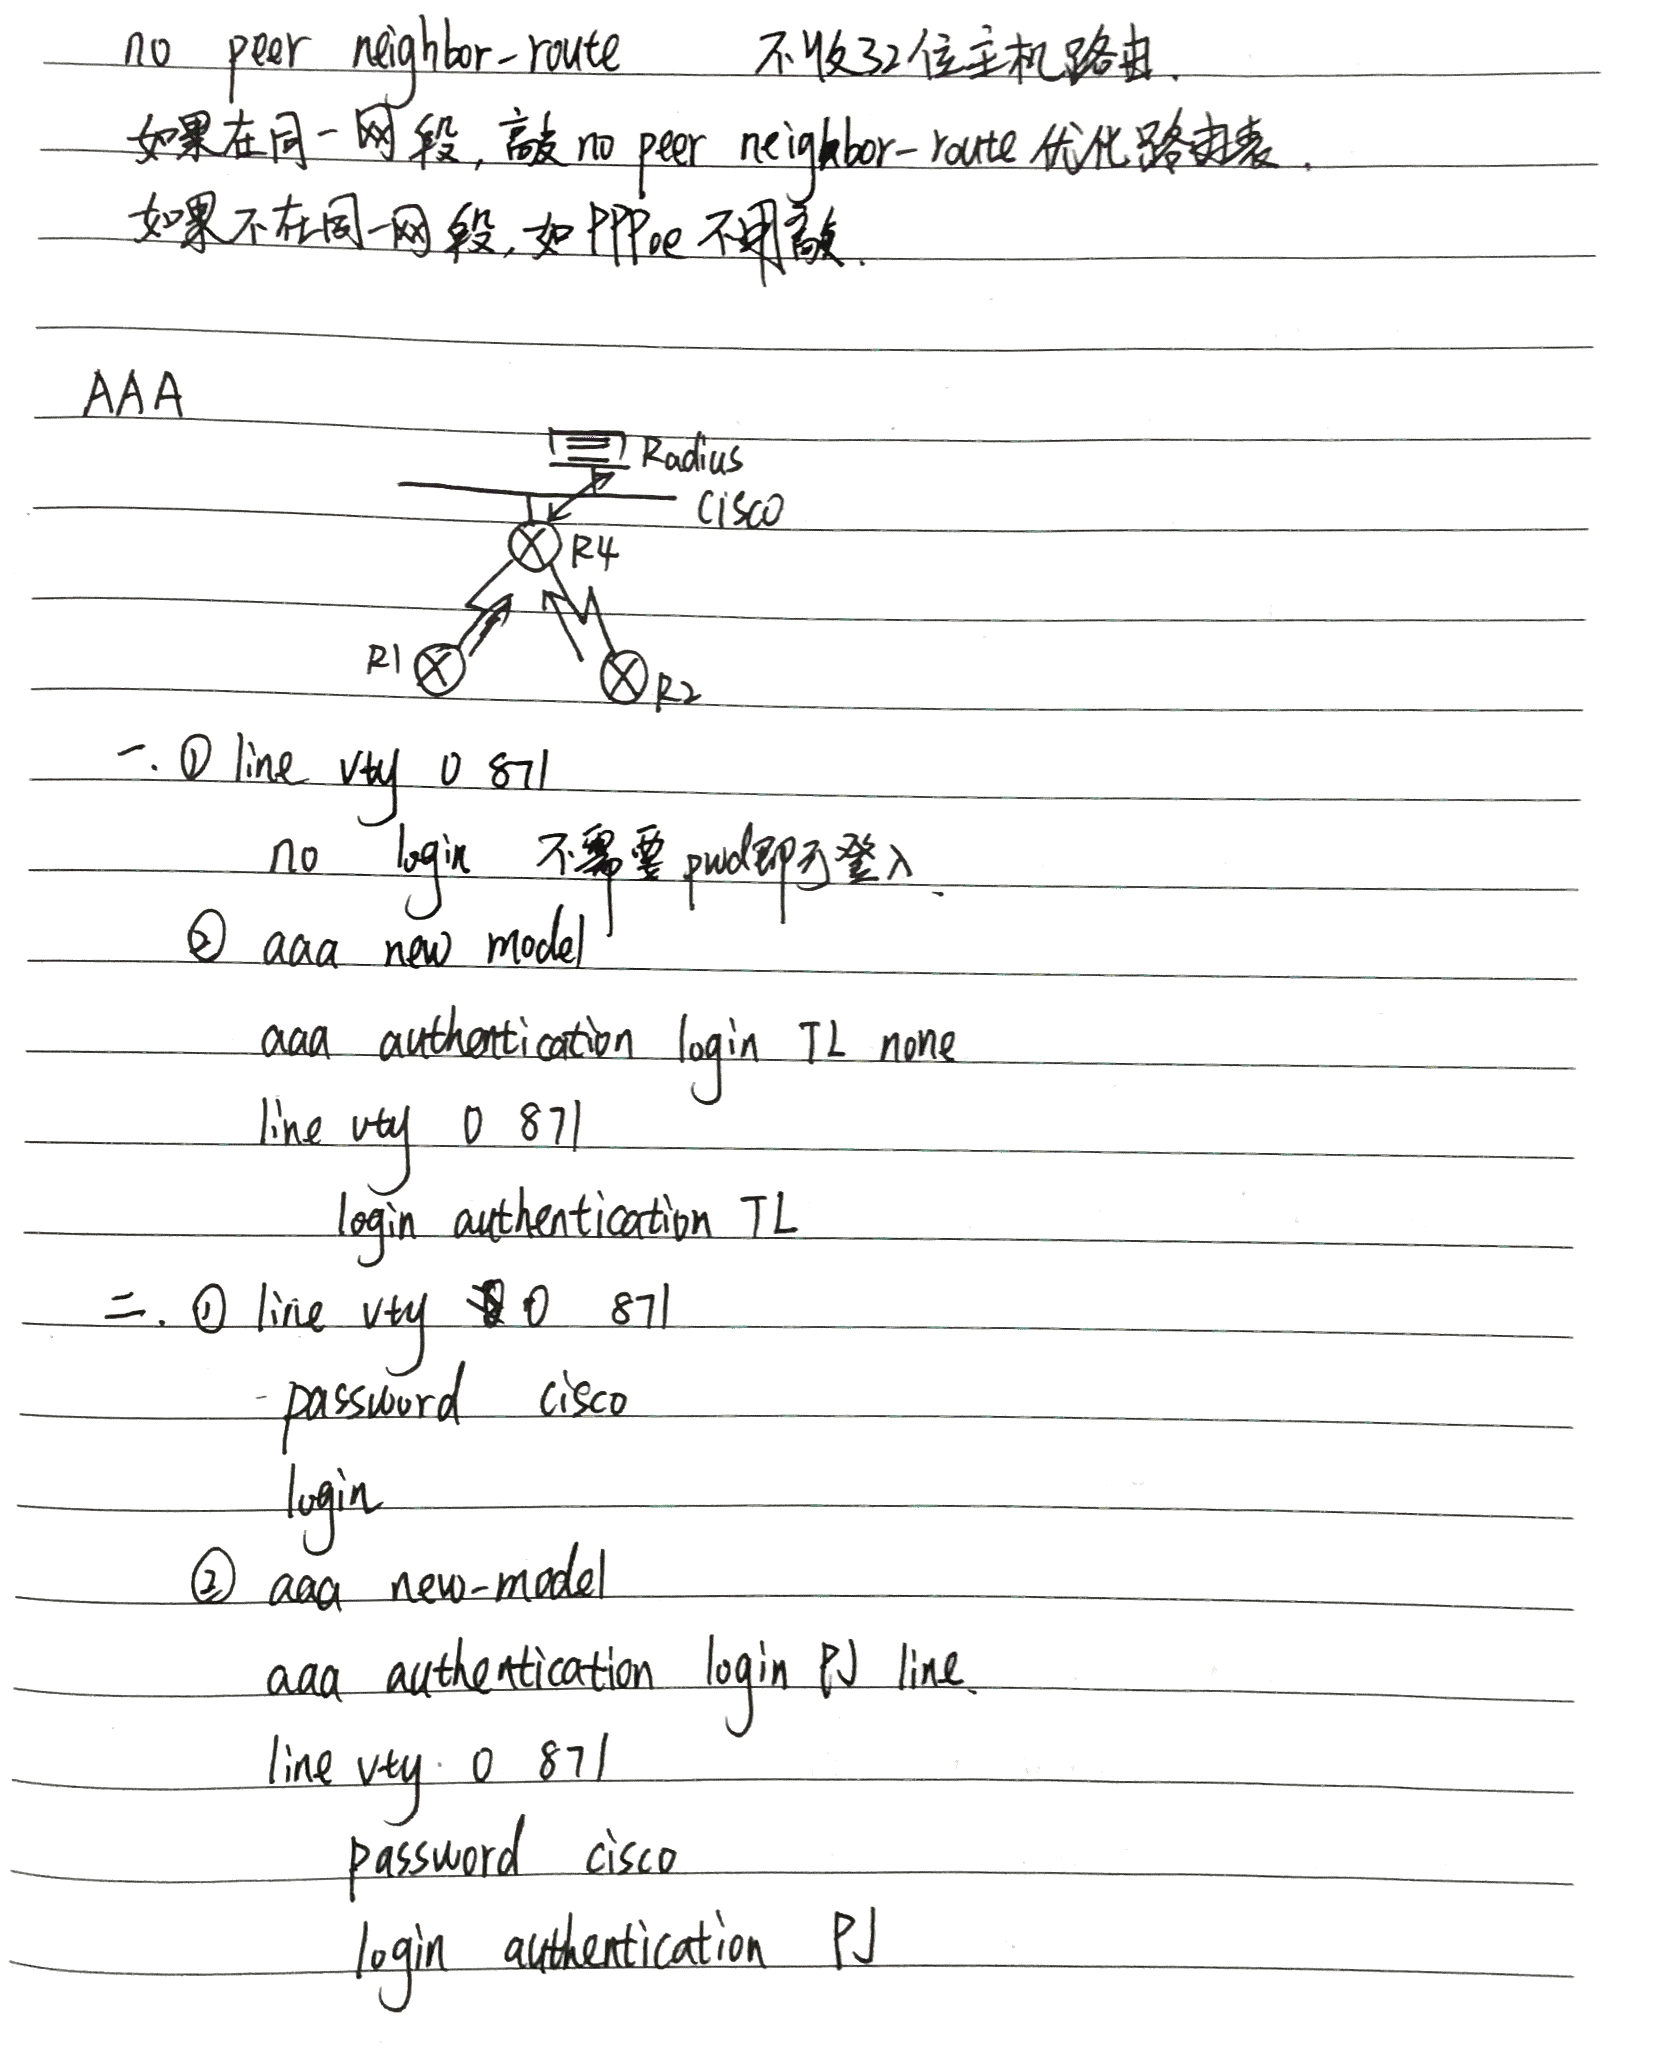 no peer neighbor-route 不收32位主机路由.
如果在同一网段,敲no peer neighbor-route优化路由表.
如果不在同一网段,如PPPoe不用敲.
AAA
Radius
cisco
R4
R1
R2
一.① line vty 0 871
no login 不需要pwd即可登入.
② aaa new model
aaa authentication login TL none
line vty 0 871
login authentication TL
二.① line vty 0 871
password cisco
login
② aaa new-model
aaa authentication login PJ line.
line vty 0 871
password cisco
login authentication PJ